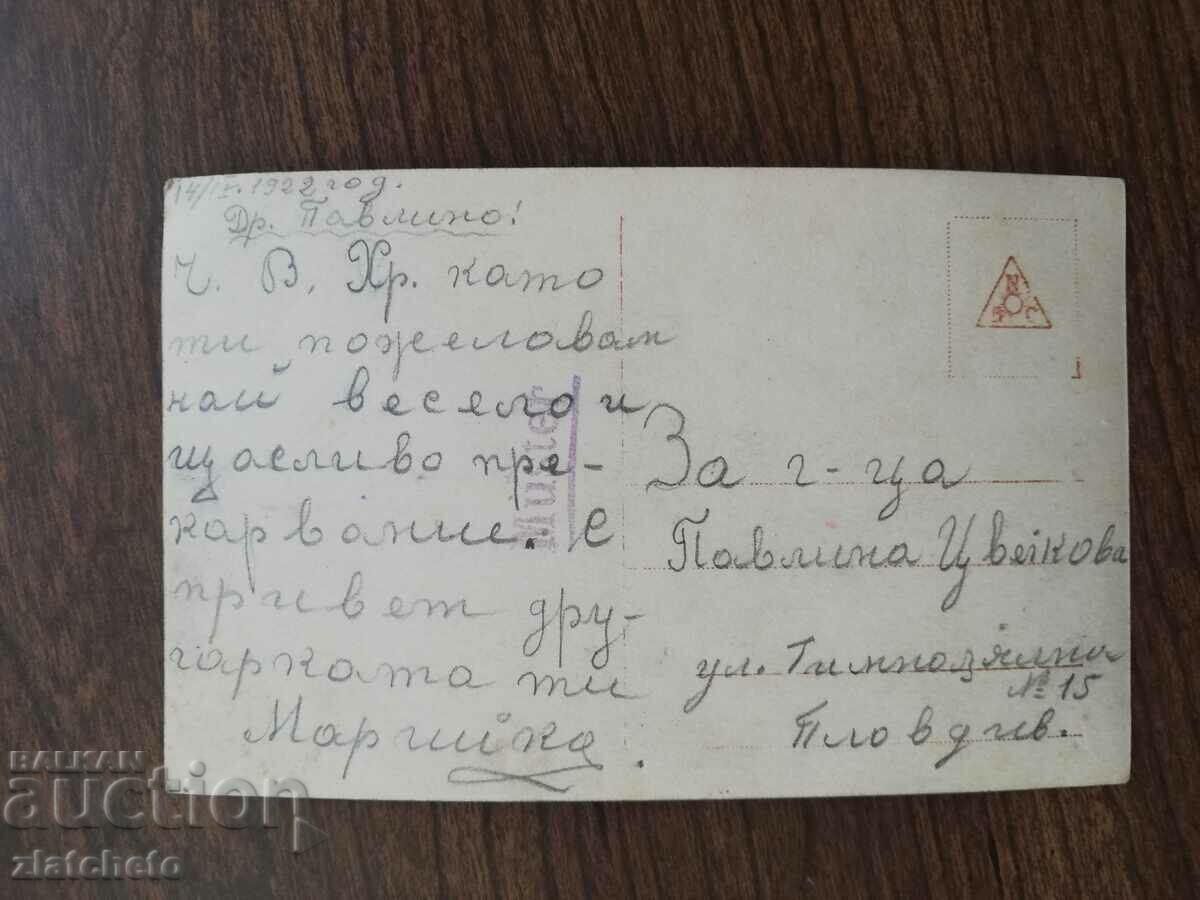 14/IV.1922 год.
Др. Павлино!
Ч. В. Хр. като
ти пожеловам
най весело и
щасливо пре-
карвание. С
привет дру-
гарката ти
Марийка.
Muster
N
B C
За г-ца
Павлина Цветкова
ул. Гимназялна
№ 15
Пловдив.
BALKAN
auction
zlatcheto